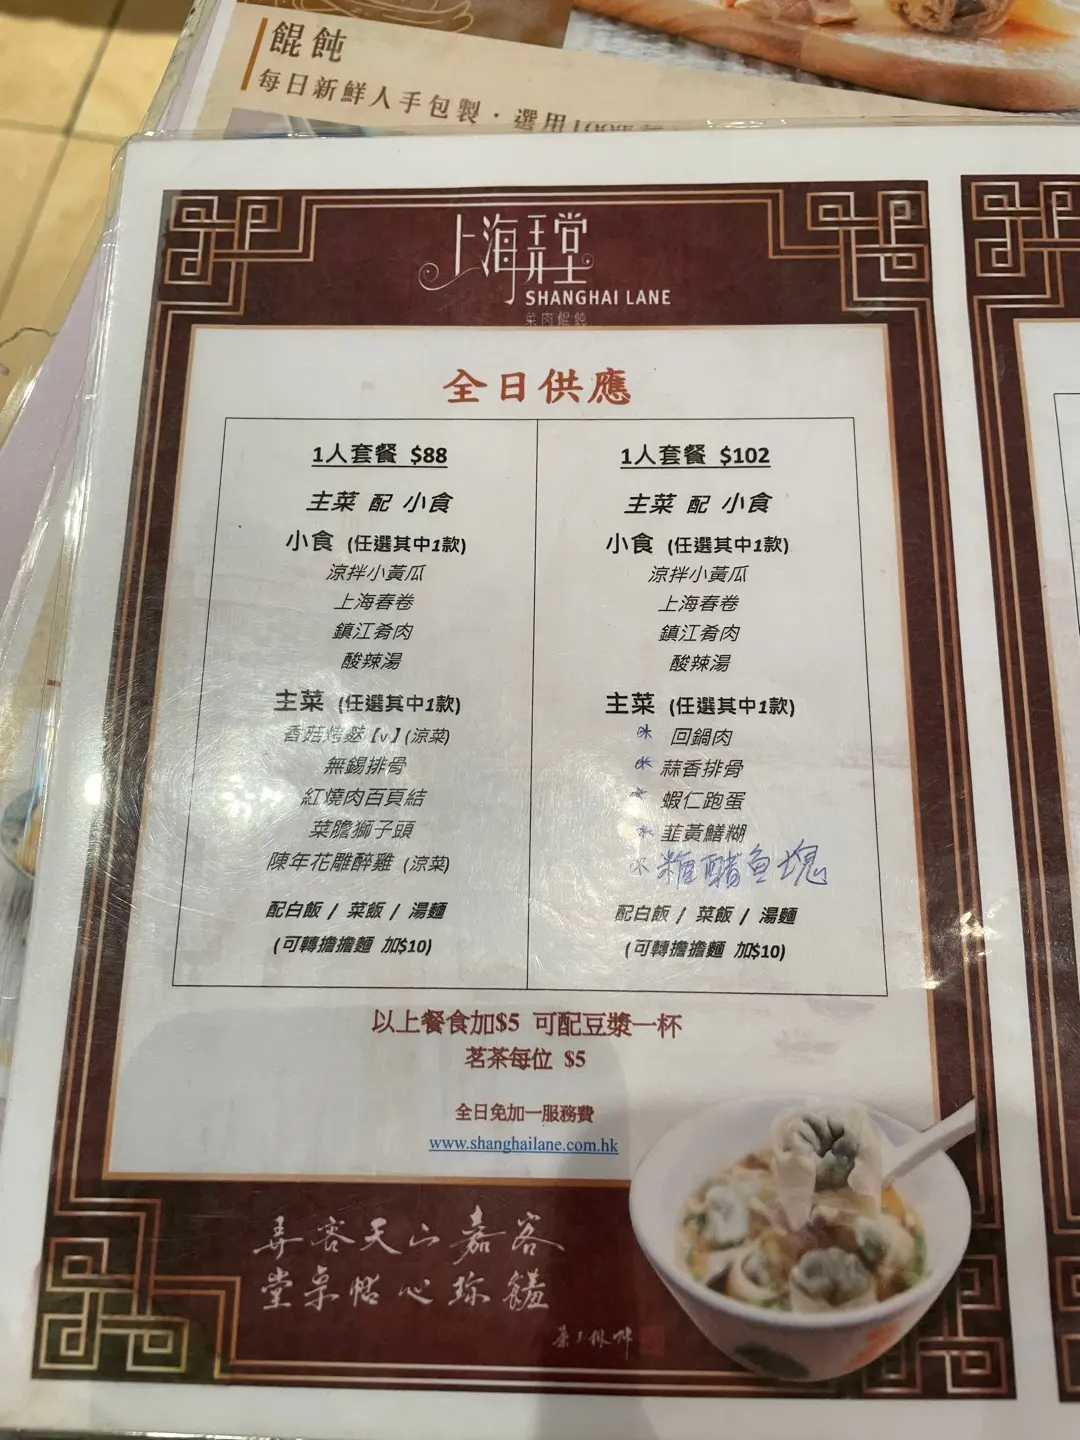 餛飩
每日新鮮人手包製 · 選用100%
上海弄堂
SHANGHAI LANE
菜肉餛飩
全日供應
1人套餐 $88
主菜 配 小食
小食 (任選其中1款)
涼拌小黃瓜
上海春卷
鎮江肴肉
酸辣湯
主菜 (任選其中1款)
香菇烤麩【v】(涼菜)
無錫排骨
紅燒肉百頁結
菜膽獅子頭
陳年花雕醉雞 (涼菜)
配白飯 / 菜飯 / 湯麵
(可轉擔擔麵 加$10)
1人套餐 $102
主菜 配 小食
小食 (任選其中1款)
涼拌小黃瓜
上海春卷
鎮江肴肉
酸辣湯
主菜 (任選其中1款)
回鍋肉
蒜香排骨
蝦仁跑蛋
韮黃鱔糊
糖醋魚塊
配白飯 / 菜飯 / 湯麵
(可轉擔擔麵 加$10)
以上餐食加$5 可配豆漿一杯
茗茶每位 $5
全日免加一服務費
www.shanghailane.com.hk
弄客天山嘉客
堂桌帖心珍饈